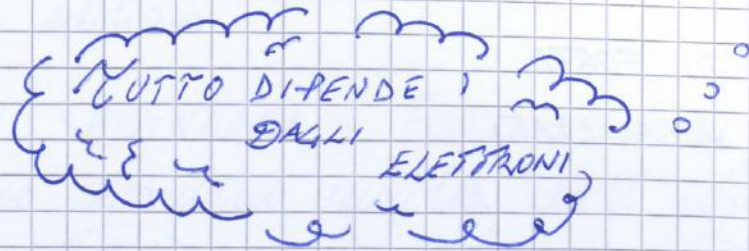 TUTTO DIPENDE
DAGLI
ELETTRONI